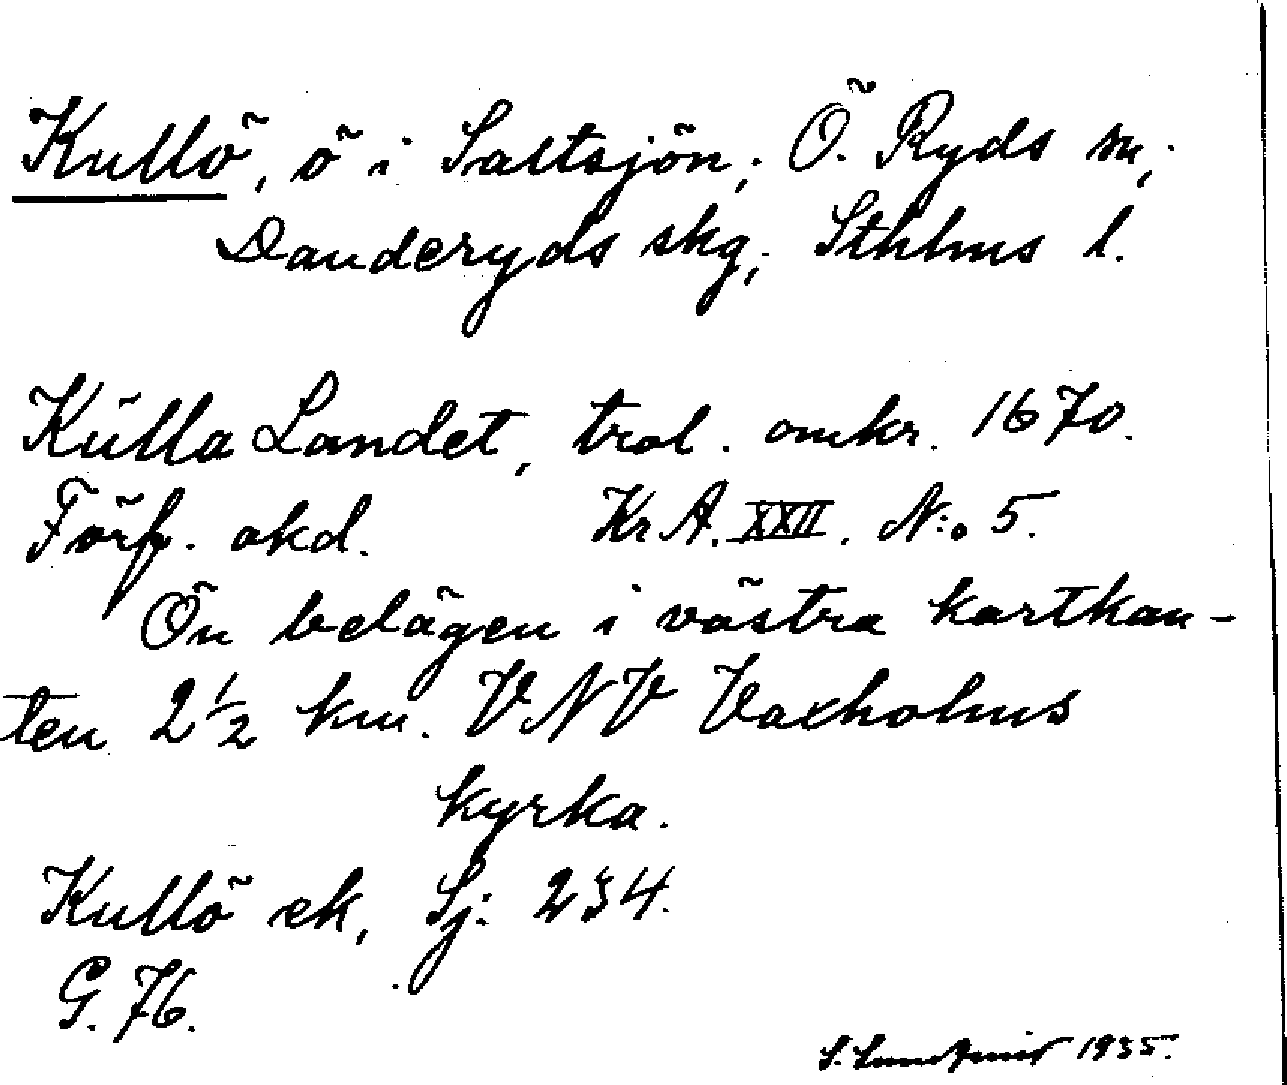 Kullö, ö i Saltsjön; Ö. Ryds sn;
Danderyds skg; Sthlms l.
Kulla Landet, trol. omkr. 1670.
Förf. okd. Kr A. XXII. N:o 5.
Ön belägen i västra kartkan-
ten 2 1/2 km. VNV Vaxholms
kyrka.
Kullö ek, Sj: 234.
G. 76.
S. 1935.